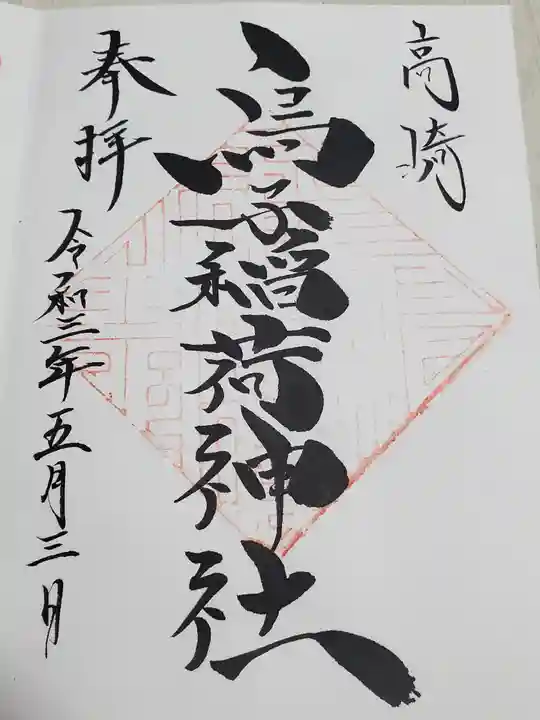 高崎
烏子稲荷神社
奉拝
令和三年五月三日